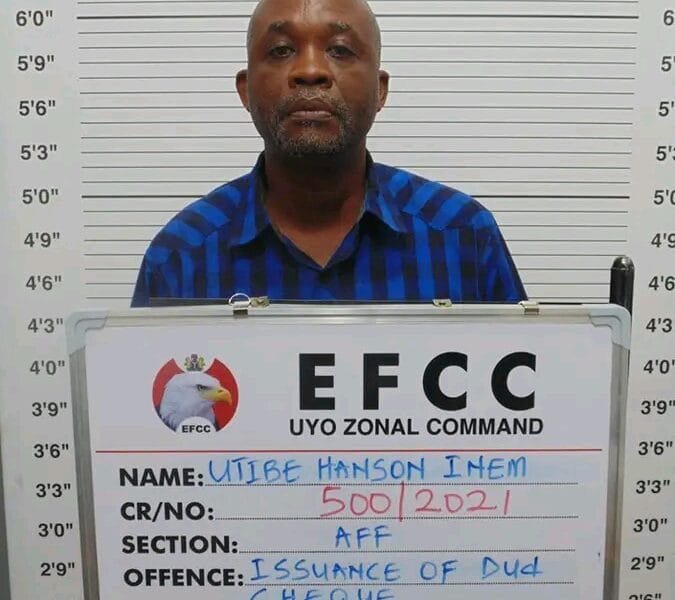 6'0"
5'9"
5'6"
5'3"
5'0"
4'9"
4'6"
4'3"
4'0"
3'9"
3'6"
3'3"
3'0"
2'9"
EFCC
EFCC
UYO ZONAL COMMAND
NAME: UTIBE HANSON INEM
CR/NO: 500/2021
SECTION: AFF
OFFENCE: ISSUANCE OF DUd
CHEQUE
6
5'
5'
5'
5'0
4'9
4'6
4'3
4'0'
3'9"
3'6"
3'3"
3'0"
2'9"
2'6"